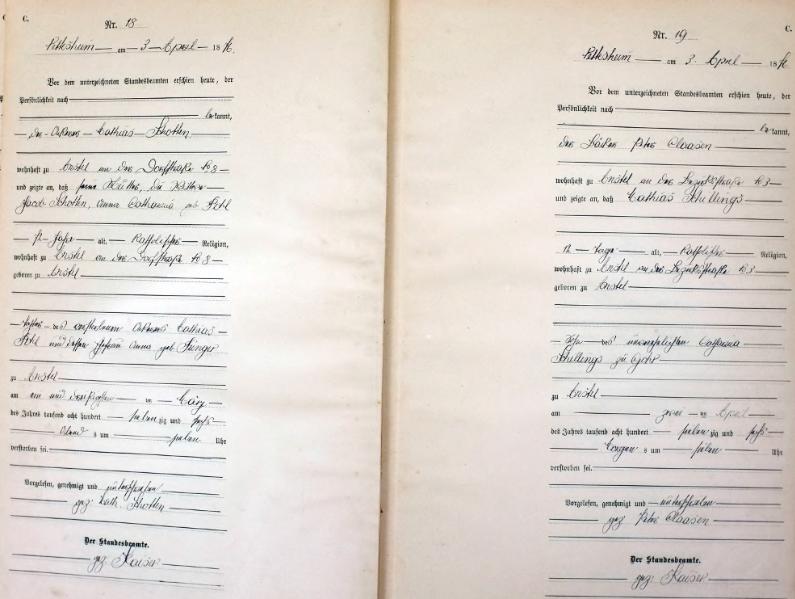 C.
Nr. 18
am 3 April 1876.
Vor dem unterzeichneten Standesbeamten erschien heute, der
Persönlichkeit nach
bekannt,
der Mathias Schotten
wohnhaft zu Anstel an der Dorfstraße No 8
und zeigte an, daß seine Mutter, die
Jacob Schotten, Anna Catharina geb
alt, Katholischer Religion,
wohnhaft zu Anstel an der Dorfstraße No 8
geboren zu Anstel
Tochter des verstorbenen Mathias
und dessen Ehefrau Anna geb
zu Anstel
am ein und dreißigsten März
des Jahres tausend acht hundert siebenzig und sechs
Abends um sieben Uhr
verstorben sei.
Vorgelesen, genehmigt und unterschrieben
gez. Math. Schotten
Der Standesbeamte.
gez. Kaiser
C.
Nr. 19
am 3 April 1876
Vor dem unterzeichneten Standesbeamten erschien heute, der
Persönlichkeit nach
bekannt,
der Peter Claasen
wohnhaft zu Anstel an der Bezirksstraße No 3
und zeigte an, daß Mathias Schillings
12 Tage alt, Katholischer Religion,
wohnhaft zu Anstel an der Bezirksstraße No 3
geboren zu Anstel
Sohn der unverehelichten Catharina
Schillings zu Gohr
zu Anstel
am zwei April
des Jahres tausend acht hundert siebenzig und sechs
Morgens um sieben Uhr
verstorben sei.
Vorgelesen, genehmigt und unterschrieben
gez. Peter Claasen
Der Standesbeamte.
gez. Kaiser